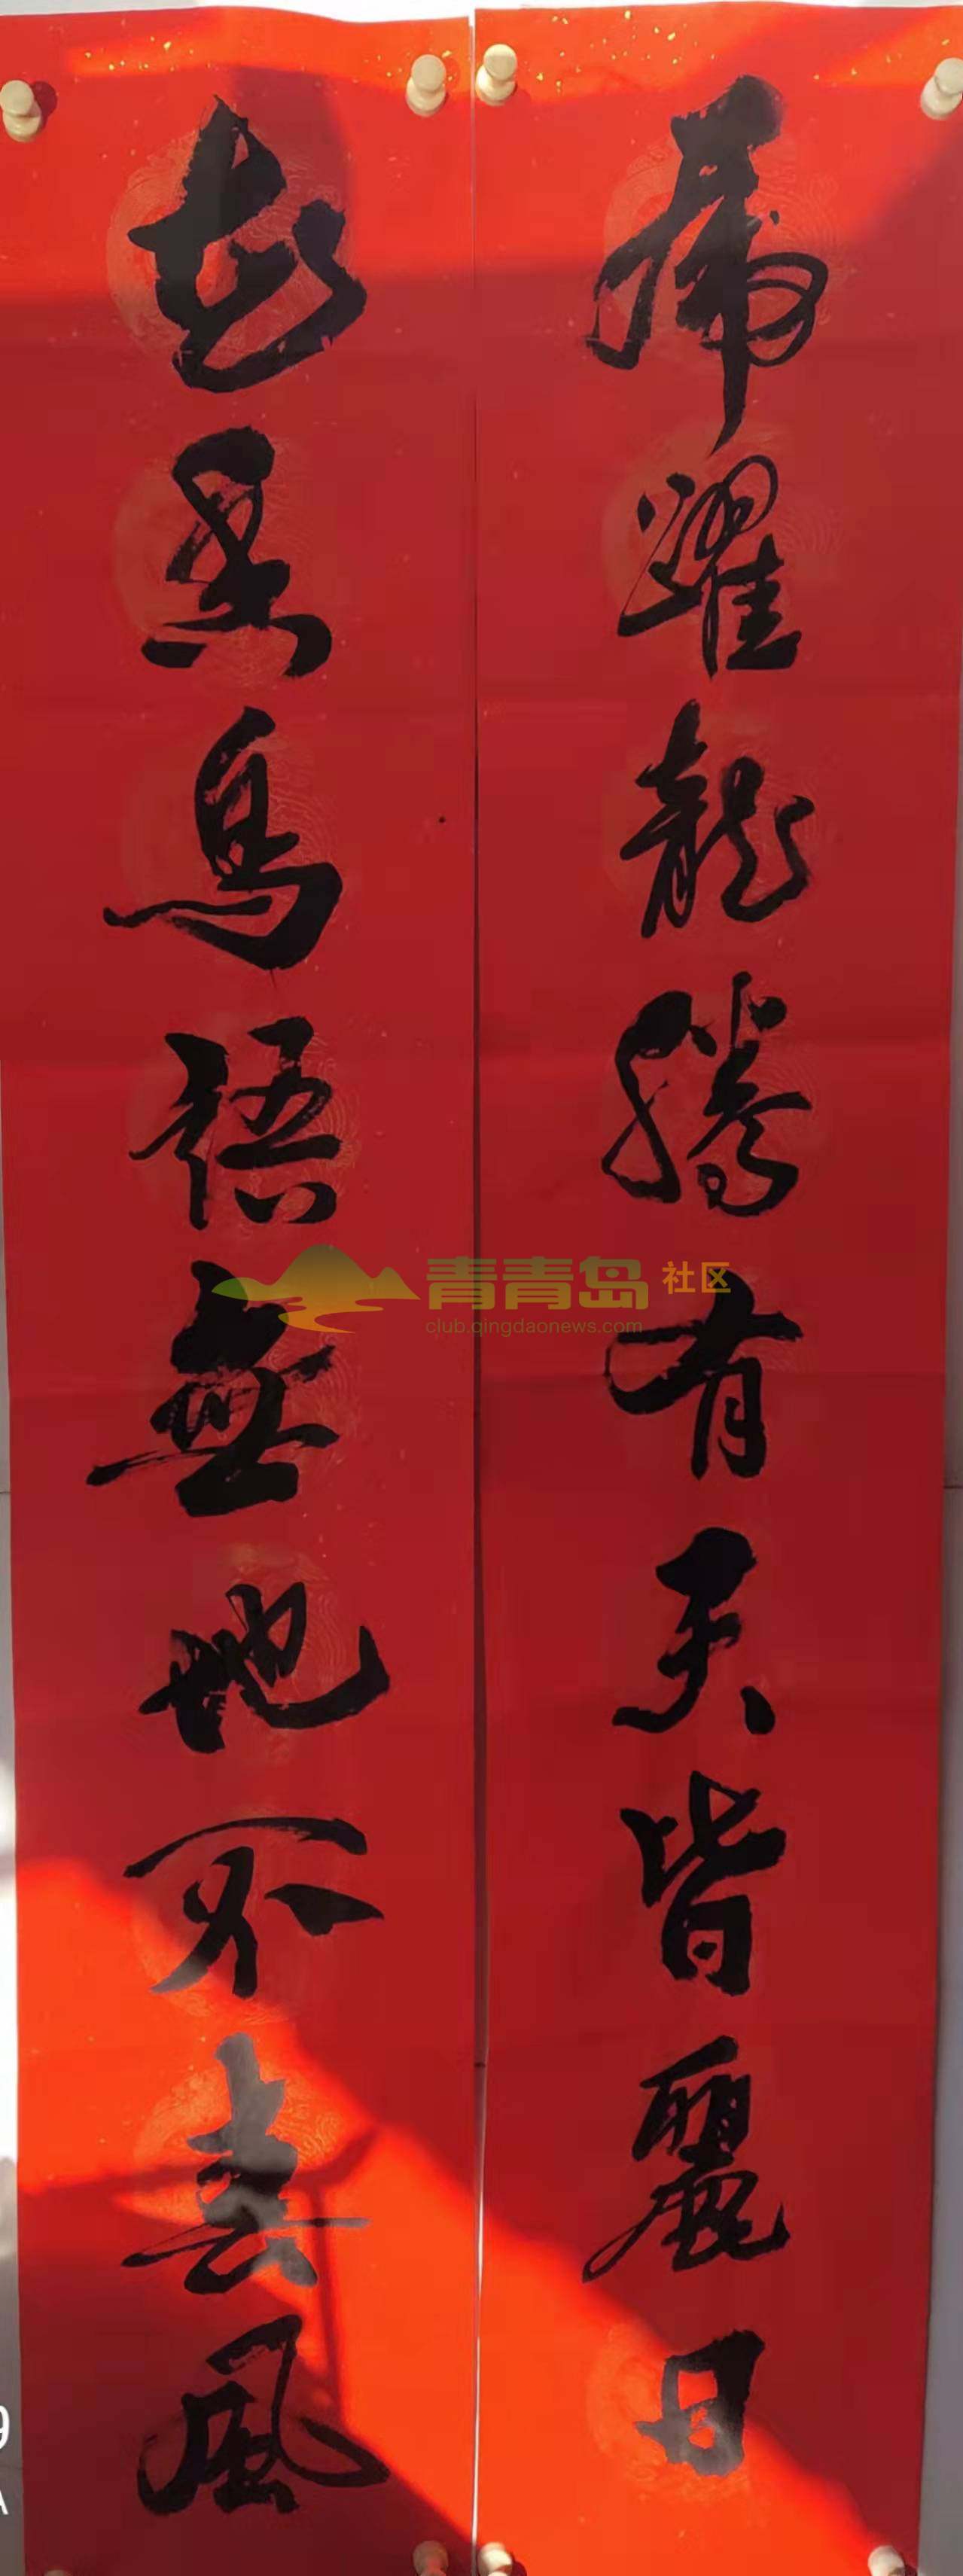 虎躍龍騰有天皆麗日
花香鳥語無地不春風
青青岛社区
club.qingdaonews.com
9
A